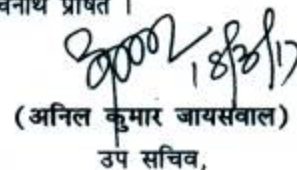 प्रेषित ।
18/3/17
(अनिल कुमार जायसवाल)
उप सचिव,